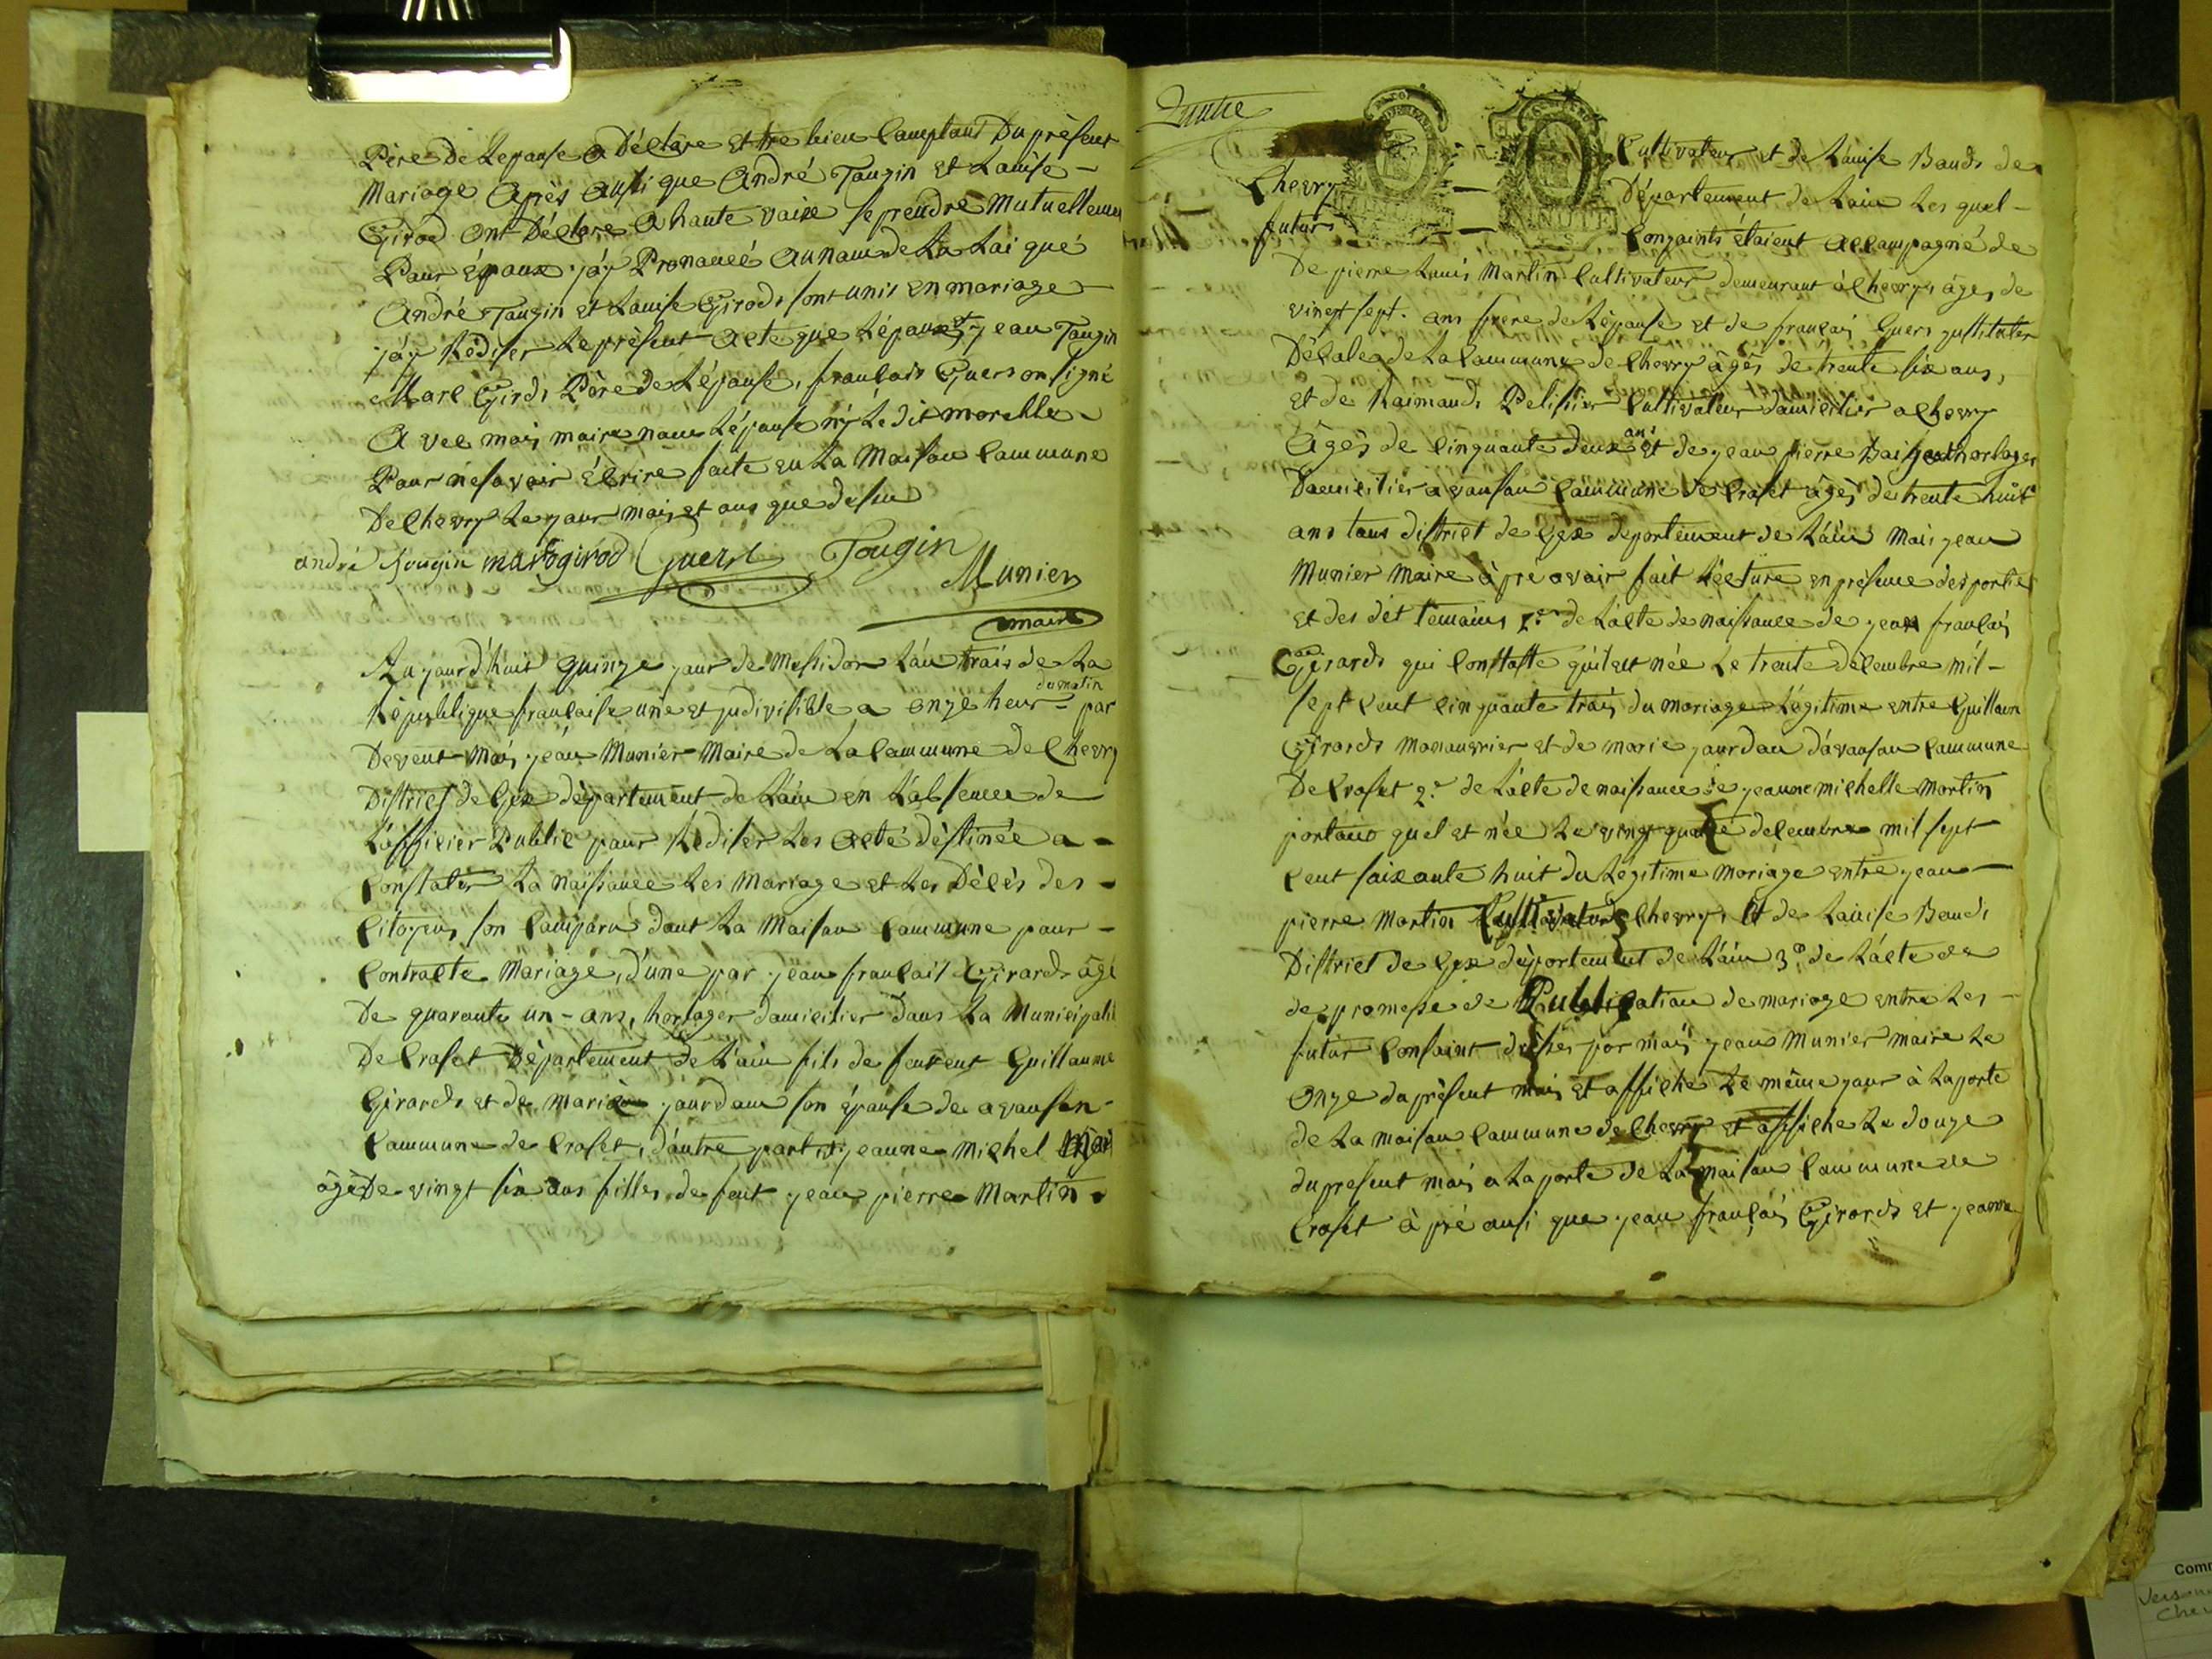 Père de Lepouse a Déclare Et tre bien Comptant Du présent
Mariage Après ausi que André Tougin Et Louise -
Girod Ont Déclare A haute voix se prendre Mutuellement
Pour époux j'ay Prononcé Au nom de La Loi que
André Tougin Et Louise Girod sont unis En mariage
j'ay Rédiser Le présent Acte que Lépoux et jean Tougin
Marc Girds Père de Lépouse, francois Guers on signé
Avec moi maire non Lépouse n'y Le dit morelle
Pour ne savoir Ecrire faite en La Maison Commune
De Chevry Le jour mois et ans que desu
andré tougin marc girod Guers Tougin
Munier
maire
Au jourd'huit quinze jour de Messidor L'an trois de La
République francaise une Et jndivisible a onze heur du matin par
Devent Moi jean Munier Maire de La Commune de Chevry
District de Gex département de Lain en L'absence de
L'officier Public pour Rediser Les Acte déstinée a -
Constater La naissance Les Mariage et Les Décès des -
Citoyens son Comparu dant La Maison Commune pour -
Contracte Mariage, d'une par jean francais Girards âgé
De quarante un - ans, horloger domicilier dans La Municipalit
De Croset Département de L'ain fils de feu Guillaume
Girards et de Marie jourdan son épouse de avouson -
Commune de Croset, d'autre part jeanne Michel
âgé De vingt six ans filles de feut jean pierre Martin
Cultivateur et de Louise Bauds de
Chevry - Département de Lain Les quel -
futurs - Conjoints étaient accompagné de
De pierre Louis Martin Cultivateur demeurant à Chevry âgés de
vingt sept ans frere de Lépouse et de francois Guers justituter
D'écale de La Commune de Chevry âgés de trente six ans,
Et de Raimonds Pelissier Cultivateur domicilier a Chevry
Âgés de Cinquante deux ans Et de jean pierre horloger
Domicilier a vouson Commune de Croset âgés de trente huit
ans tous district de Gex departement de Lain Moi jean
Munier Maire àpré avoir fait Lecture en présence des partie
et des dit temoins 1.er de Lacte de naissance de jean francois
Girards qui Constate quil est née Le trente décembre mil -
sept cent cinquante trois du mariage Légitime entre Guillaum
Girards Manouvrier et de marie jourdan d'avouson Commune
De Croset 2.e de Lacte de naissance de jeanne michelle Martin
portans quel et née Le vingt quatre decembre mil sept
Cent soixante huit du Légitime Mariage entre jean -
pierre Martin Cultivateur Chevry, Et de Louise Bauds
District de Gex département de Lain 3.e de Lacte de
de promesse de Publication de mariage entre Les -
futur Conjoint dreser par moi jean Munier maire Le
Onze du présent mois et affiché Le même jour à La porte
de La maison Commune de Chevry et affiche Le douze
du present mois a La porte de La maison Commune de
Croset à pré ausi que jean francois Girards Et jeanne